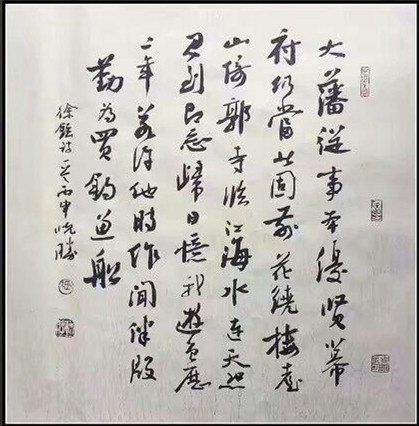 大藩從事本優賢幕
府仍當北固前花繞樓臺
山倚郭寺臨江海水連天恐
君到即忘歸日憶我遊曾歷
二年若許他時作閒伴殷
勤為買釣魚船
徐鉉詩一首丙申曉勝